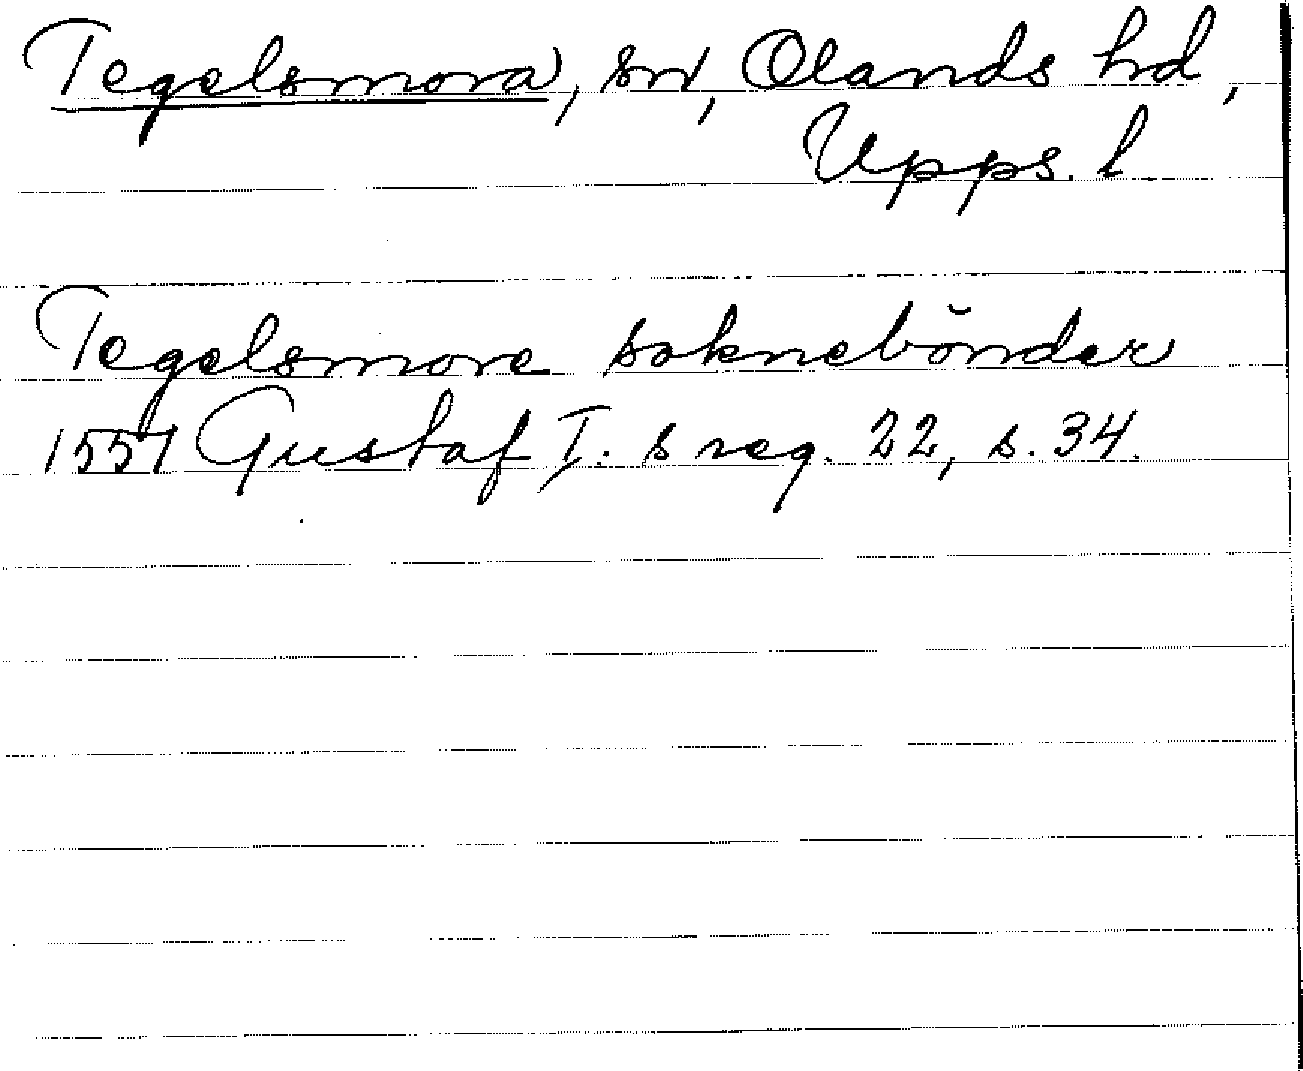 Tegelsmora, sn, Olands hd,
Upps. l
Tegelsmore soknebönder
1551 Gustaf I. s reg. 22, s. 34.